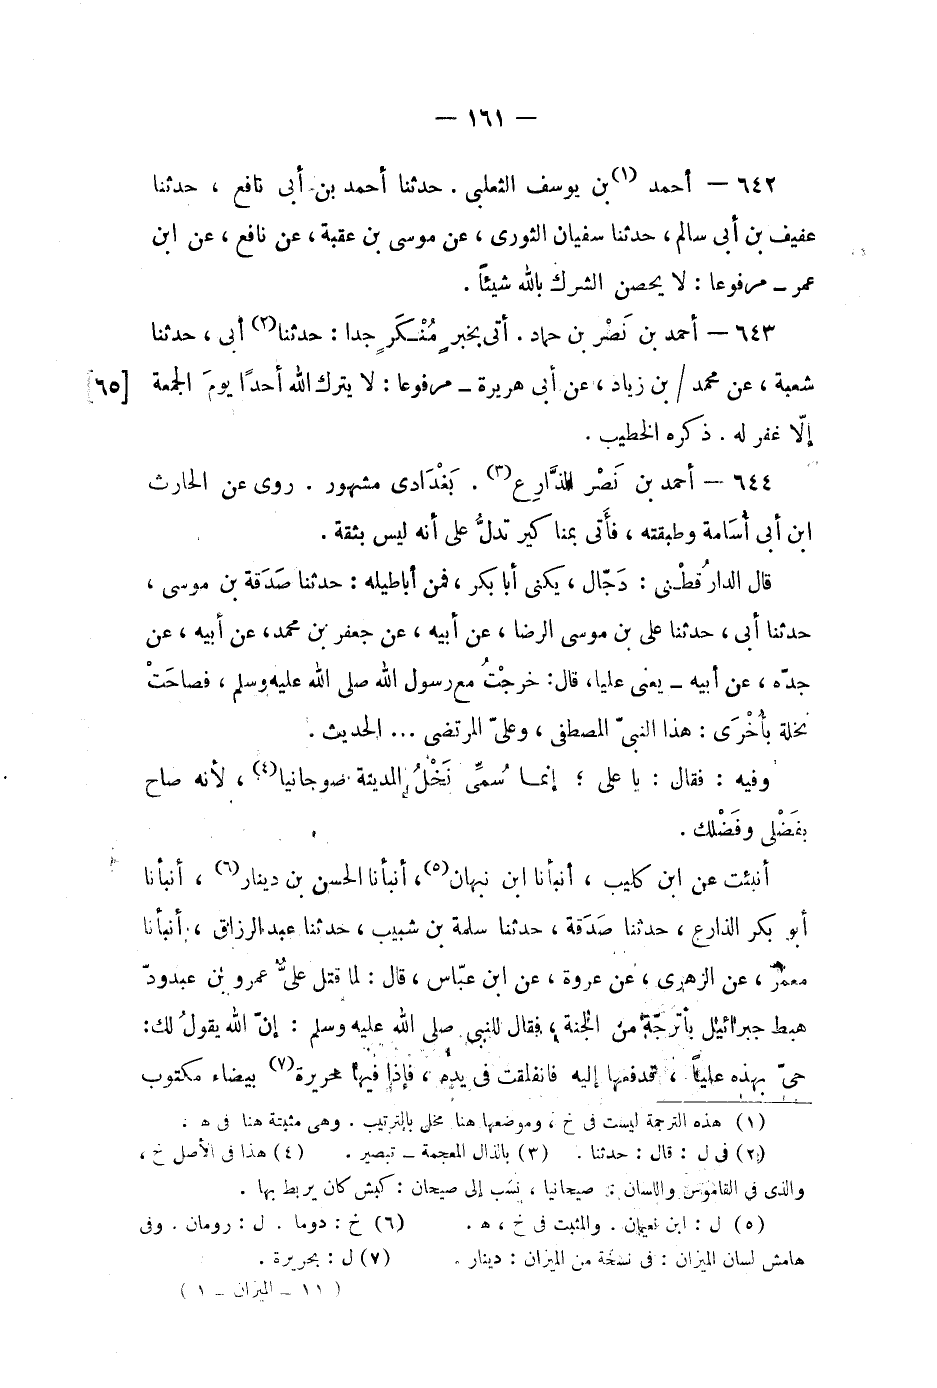 — ١٦١ —
٦٤٢ — أحمد (١) بن يوسف الثعلبى . حدثنا أحمد بن أبى نافع ، حدثنا
عفيف بن أبى سالم ، حدثنا سفيان الثورى ، عن موسى بن عقبة ، عن نافع ، عن ابن
عمر ـ مرفوعا : لا يحصن الشرك بالله شيئاً .
٦٤٣ — أحمد بن نَصْر بن حماد . أتى بخبرٍ مُنْكَرٍ جدا : حدثنا (٢) أبى ، حدثنا
شعبة ، عن محمد / بن زياد ، عن أبى هريرة ـ مرفوعا : لا يترك الله أحدًا يومَ الجمعة [٦٥]
إلّا غفر له . ذكره الخطيب .
٦٤٤ — أحمد بن نَصْر الذَّارِع (٣) . بَغْدَادى مشهور . روى عن الحارث
ابن أبى أسَامة وطبقته ، فأَتى بمناكير تدلُّ على أنه ليس بثقة .
قال الدارقُطْنى : دَجّال ، يكنى أبا بكر ، فمن أباطيله : حدثنا صَدَقة بن موسى ،
حدثنا أبى ، حدثنا على بن موسى الرضا ، عن أبيه ، عن جعفر بن محمد ، عن أبيه ، عن
جدّه ، عن أبيه ـ يعنى عليا ، قال : خرجْتُ مع رسول الله صلى الله عليه وسلم ، فصاحَتْ
نخلة بأُخْرَى : هذا النبىّ المصطفى ، وعلىّ المرتضى ... الحديث .
وفيه : فقال : يا على ؛ إنما سُمِّى نَخْلُ المدينة صوجانيا (٤) ، لأنه صاح
بفَضْلى وفَضْلك .
أنبئت عن ابن كليب ، أنبأنا ابن نبهان (٥) ، أنبأنا الحسن بن دينار (٦) ، أنبأنا
أبو بكر الذارع ، حدثنا صَدَقة ، حدثنا سلمة بن شبيب ، حدثنا عبد الرزاق ، أنبأنا
معمر ، عن الزهرى ، عن عروة ، عن ابن عبّاس ، قال : لما قتل علىٌّ عمرو بن عبدودّ
هبط جبرائيل بأترجّة من الجنة ، فقال للنبى صلى الله عليه وسلم : إنّ الله يقولُ لك :
حىّ بهذه علياً ، فدفعها إليه فانفلقت فى يده ، فإذا فيها حريرة (٧) بيضاء مكتوب
(١) هذه الترجمة ليست فى خ ، وموضعها هنا مخل بالترتيب . وهى مثبتة هنا فى ه .
(٢) فى ل : قال : حدثنا . (٣) بالذال المعجمة ـ تبصير . (٤) هذا فى الأصل خ ،
والذى في القاموس واللسان : صيحانيا ، نسَب إلى صيحان : كبش كان يربط بها .
(٥) ل : ابن نعمان . والمثبت فى خ ، ه . (٦) خ : دوما . ل : رومان . وفى
هامش لسان الميزان : فى نسخة من الميزان : دينار . (٧) ل : بحريرة .
( ١١ ـ الميزان ـ ١ )